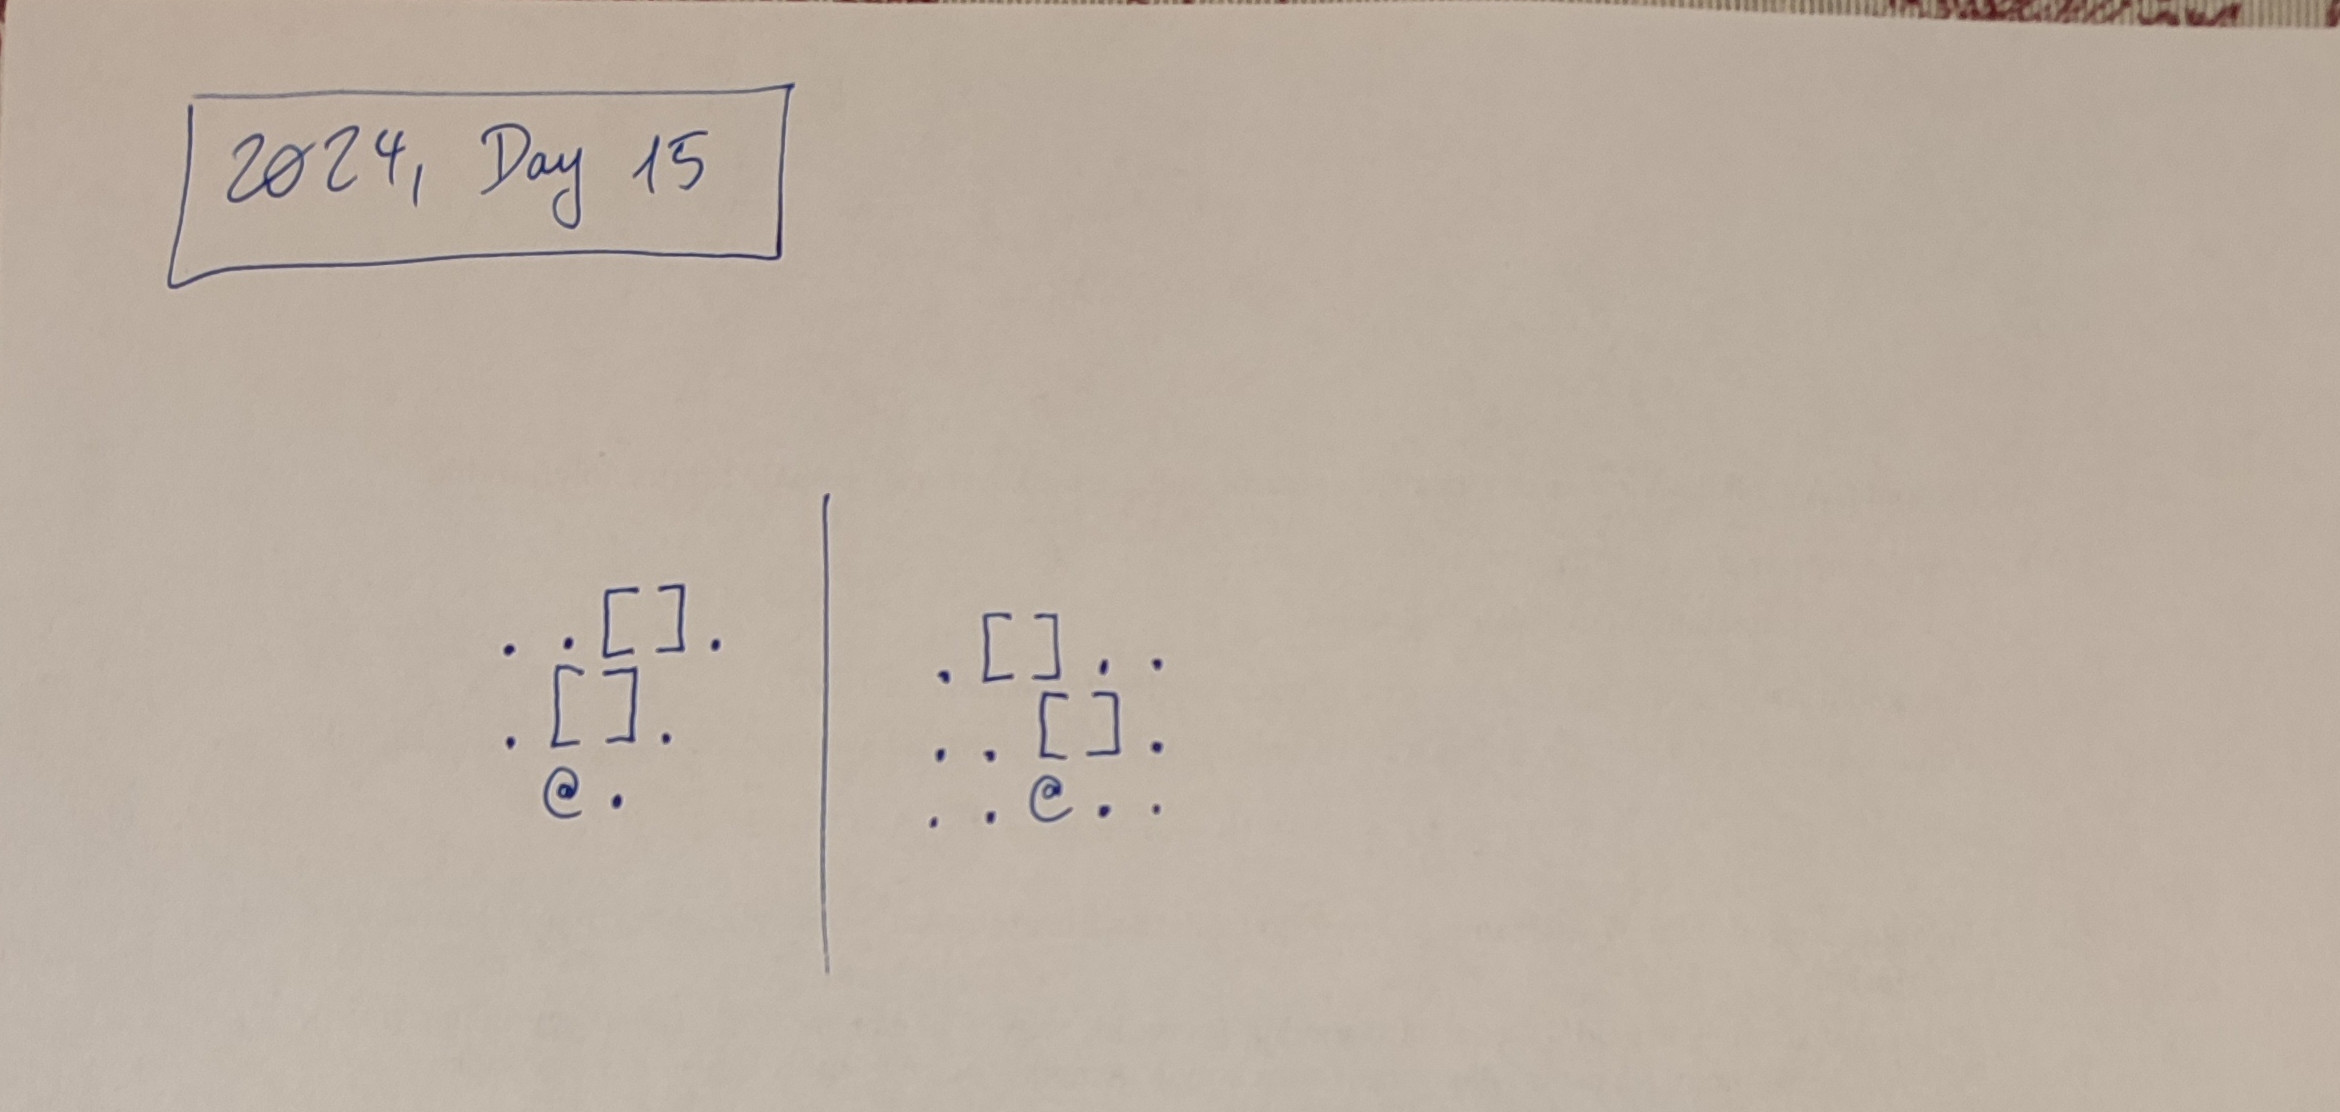 2024, Day 15
. . [ ] .
. [ ] .
@ .
. [ ] . .
. . [ ] .
. . @ . .